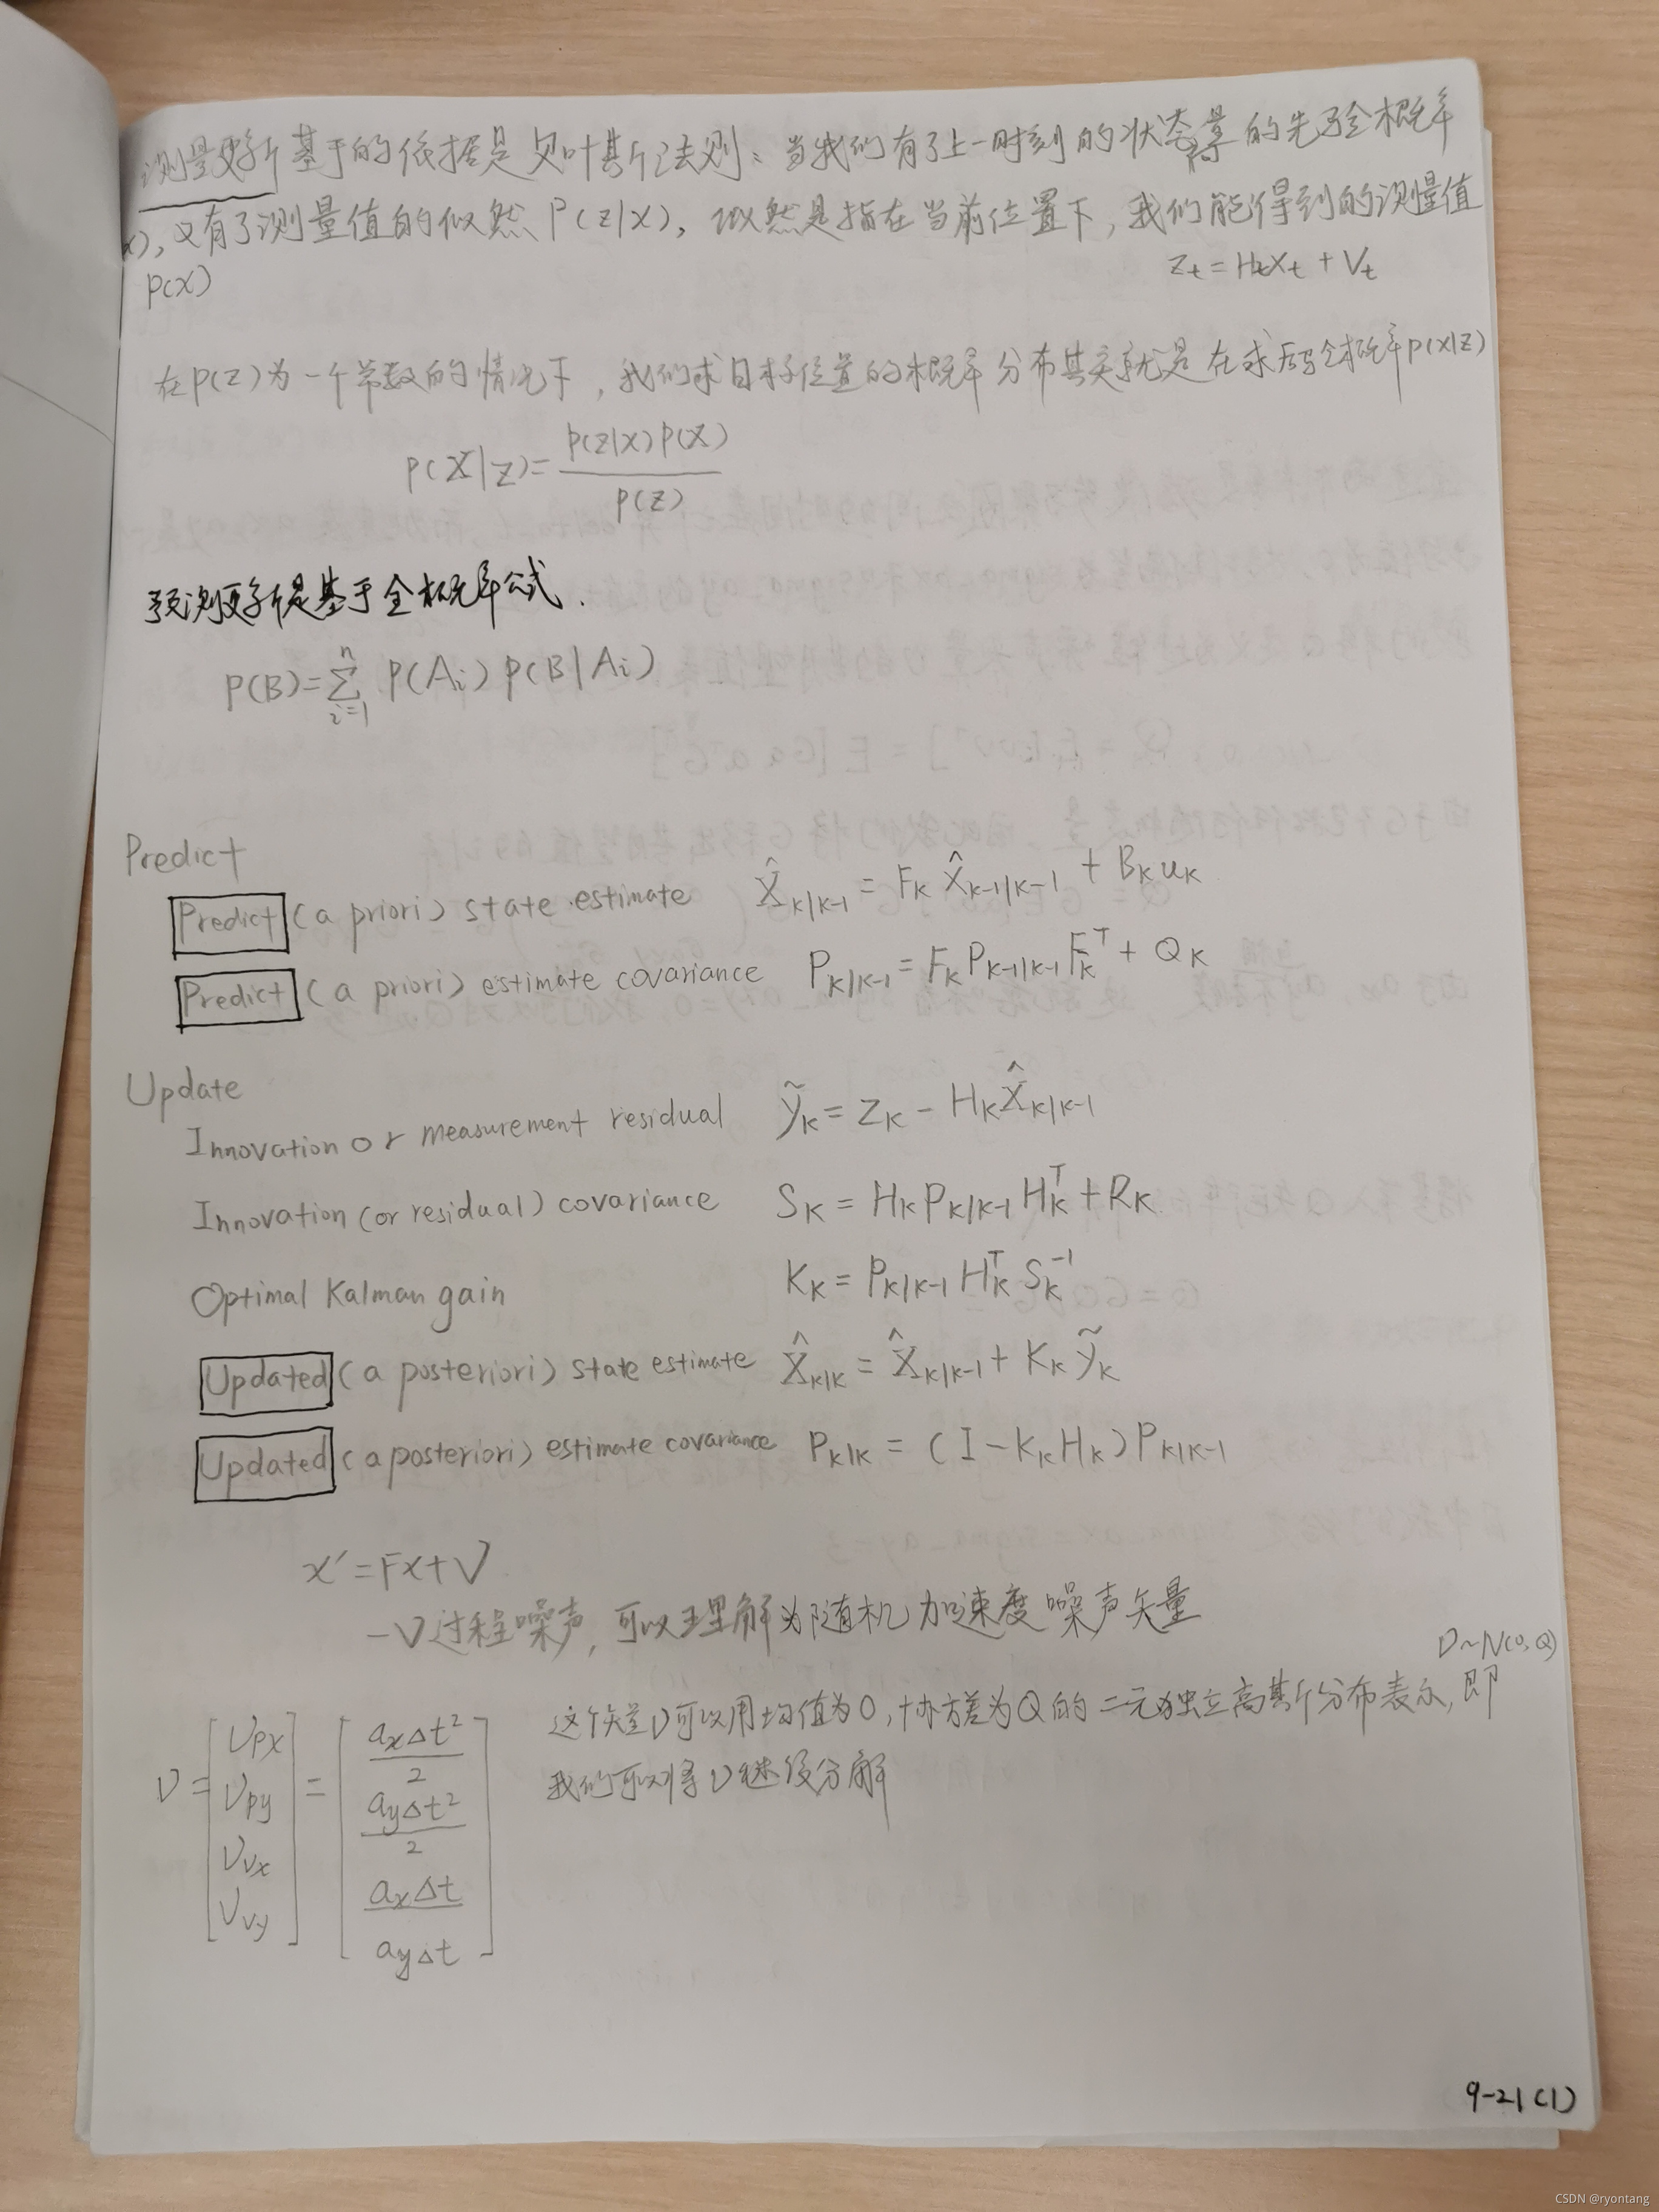 测量更新基于的依据是贝叶斯法则、当我们有了上一时刻的状态量的先验概率
x),又有了测量值的似然 P(z|x),似然是指在当前位置下,我们能得到的测量值
P(x)
Z_t = H_t X_t + V_t
在P(Z)为一个常数的情况下,我们求目标位置的概率分布其实就是在求后验概率P(x|z)
P(X|Z) = P(Z|X)P(X) / P(Z)
预测更新是基于全概率公式.
P(B) = ∑_{i=1}^{n} P(A_i) P(B|A_i)
Predict
Predict (a priori) state estimate X̂_{K|K-1} = F_K X̂_{K-1|K-1} + B_K u_K
Predict (a priori) estimate covariance P_{K|K-1} = F_K P_{K-1|K-1} F_K^T + Q_K
Update
Innovation or measurement residual ỹ_K = Z_K - H_K X̂_{K|K-1}
Innovation (or residual) covariance S_K = H_K P_{K|K-1} H_K^T + R_K
Optimal Kalman gain K_K = P_{K|K-1} H_K^T S_K^{-1}
Updated (a posteriori) state estimate X̂_{K|K} = X̂_{K|K-1} + K_K ỹ_K
Updated (a posteriori) estimate covariance P_{K|K} = (I - K_K H_K) P_{K|K-1}
x' = Fx + ν
- ν 过程噪声,可以理解为随机加速度噪声矢量
ν~N(0,Q)
这个矢量ν可以用均值为0,协方差为Q的二元独立高斯分布表示,即
我们可以将ν继续分解
ν = [ν_px ν_py ν_vx ν_vy] = [a_xΔt²/2 a_yΔt²/2 a_xΔt a_yΔt]
9-21(1)
CSDN @ryontang